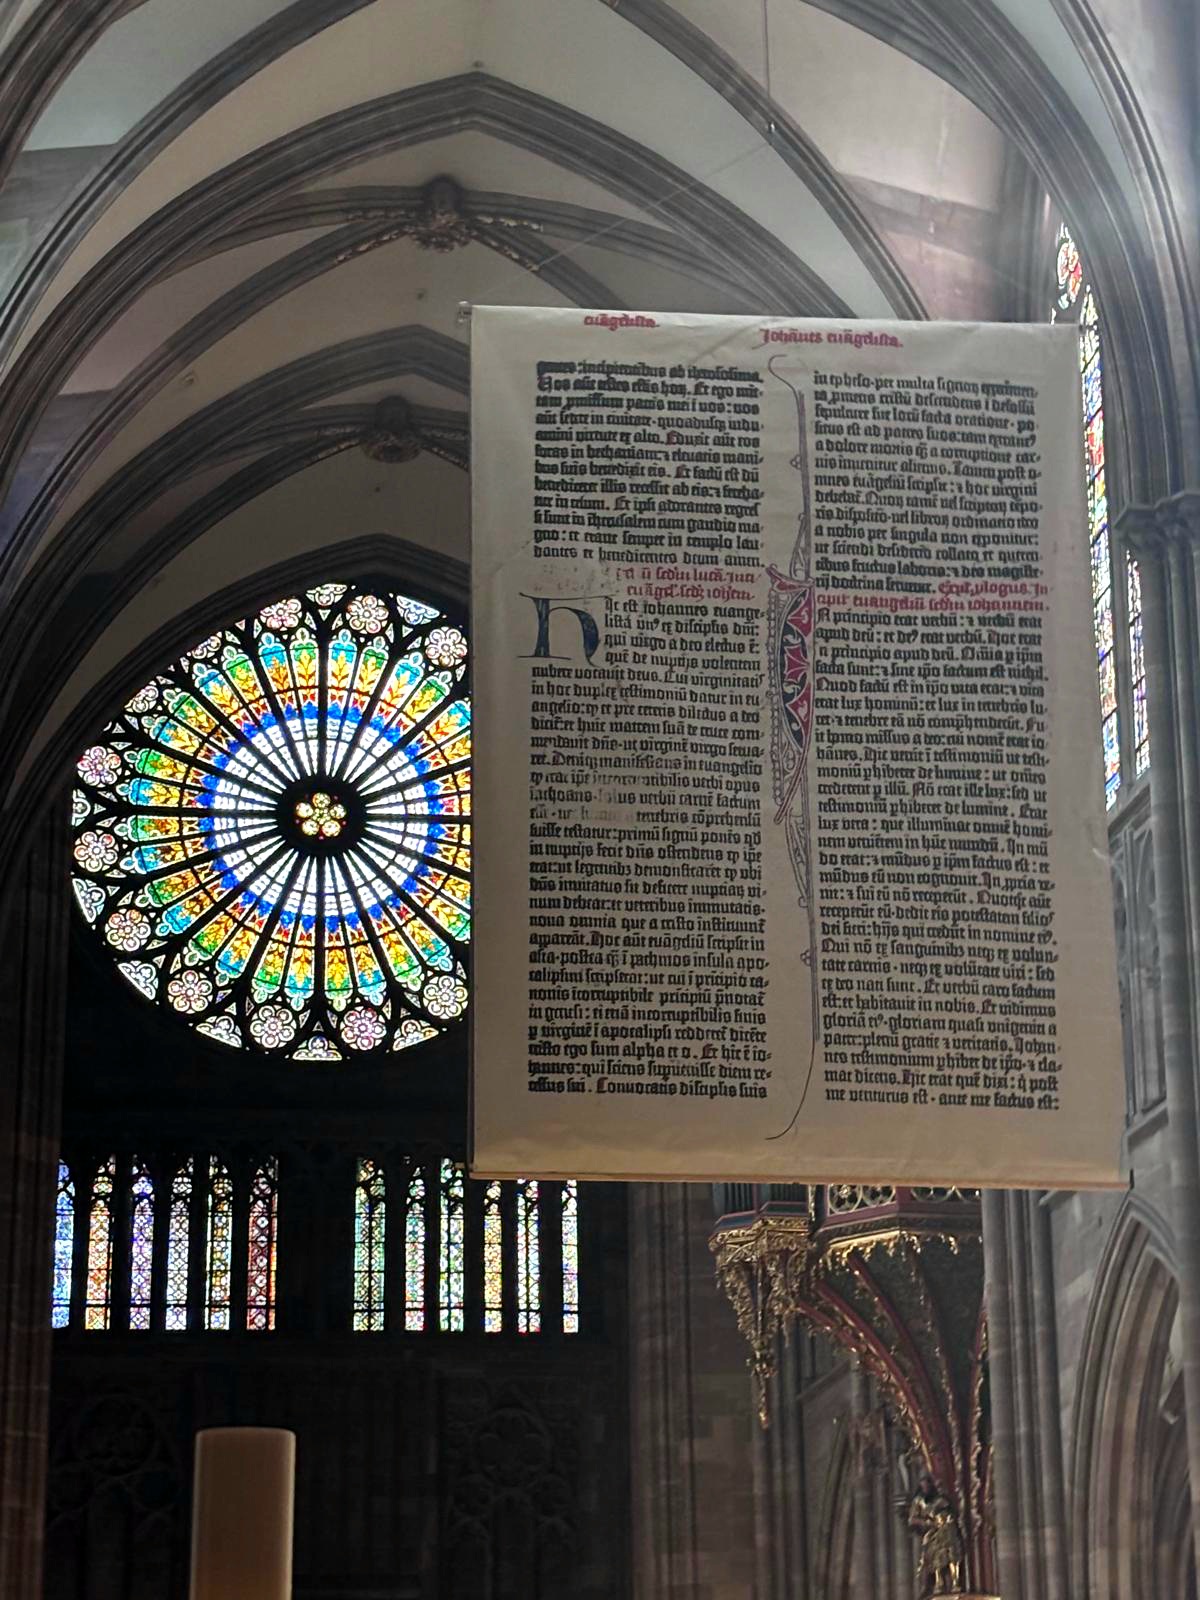 euãgelista.
Johãnes euãgelista.
gentes: incipientibus ab iherosolima.
Vos aũt testes estis horꝝ. Et ego mit-
tam ꝓmissum patris mei ĩ vos: vos
aũt sedete in civitate· quoadusqꝫ indu-
amini virtute ex alto. Eduxit aũt eos
foras in bethaniam: ⁊ elevatis mani-
bus suis benedixit eis. Et factũ est dũ
benediceret illis recessit ab eis: ⁊ fereba-
tur in celum. Et ipsi adorantes regres-
si sunt in iherusalem cum gaudio ma-
gno: et erant semper in templo lau-
dantes et benedicentes deum amen.
secũdũ lucã. Inci
euãgeł. secũdꝫ iohem.
Hic est iohannes euange-
listã unꝰ ex discipłis dñi:
qui virgo a deo electus ẽ:
quẽ de nuptijs volentem
nubere vocavit deus. Cui virginitatꝭ
in hoc duplex testimoniũ datur in eu-
angelio: ꝙ et pre ceteris dilectus a deo
dicit̃: et huic matrem suã de cruce com-
mendavit dñs· ut virginẽ virgo serva-
ret. Deniqꝫ manifestans in euangelio
ꝙ erat ip̃e incorruptibilis verbi opus
inchoans· solus verbũ carnẽ factum
esse· nec lumen a tenebris cõprehensũ
fuisse testatur: primũ signũ ponẽs qd̃
in nuptijs fecit dñs ostendens ꝙ ip̃e
erat: ut legentibꝫ demonstraret ꝙ ubi
dñs invitatus sit deficere nuptiaꝝ vi-
num debeat: et veteribus inmutatis·
nova omnia que a cristo instituunt̃
appareãt. Hoc aũt euãgeliũ scripsit in
asia· postea qͣ̃ ĩ pathmos insula apo-
calipsim scripserat: ut cui ĩ pricipio ca-
nonis ĩcorruptibile pricipiũ p̃notat̃
in genesi: ei etiã incorruptibilis finis
ꝑ virginẽ ĩ apocalipsi redderet̃ dicẽte
cristo ego sum alpha et o. Et hic ẽ io-
hannes: qui sciens supvenisse diem re-
cessus sui. Convocatis discipłis suis
in epheso· per multa signoꝝ experimen-
ta ꝓmens cristũ descendens ĩ defossũ
sepulture sue locũ facta oratione· po-
situs est ad patres suos: tam extraneꝰ
a dolore mortis qͣ̃ a corruptione car-
nis invenitur alienus. Tamen post o-
mnes euãgeliũ scripsit: ⁊ hoc virgini
debebat̃. Quoꝝ tamẽ vel scriptoꝝ tẽpo-
ris dispositõ· vel libroꝝ ordinatio ideo
a nobis per singula non exponitur:
ut sciendi desiderio collato et queren-
tibus fructus laboris: ⁊ deo magiste-
rij doctrina servetur. Explic̃ plogus. In-
cipit euangeliũ scdm iohannem.
In principio erat verbũ: ⁊ verbũ erat
apud deũ: et deꝰ erat verbũ. Hoc erat
in principio apud deũ. Om̃ia ꝑ ip̃m
facta sunt: ⁊ sine ip̃o factum est nichil.
Quod factũ est in ip̃o vita erat: ⁊ vita
erat lux hominũ: et lux in tenebris lu-
cet· ⁊ tenebre eã nõ comp̃henderũt. Fu-
it homo missus a deo: cui nomẽ erat io-
hãnes. Hic venit ĩ testimoniũ ut testi-
moniũ ꝑhiberet de lumine: ut om̃es
crederent ꝑ illũ. Nõ erat ille lux: sed ut
testimoniũ ꝑhiberet de lumine. Erat
lux vera: que illuminat omnẽ homi-
nem venientem in hũc mundũ. In mũ-
do erat: ⁊ mũdus ꝑ ip̃m factus est: et
mũdus eũ non cognovit. In ꝓpria ve-
nit: ⁊ sui eũ nõ receperũt. Quotqͦt aũt
receperũt eũ· dedit eis potestatem filios
dei fieri: hijs qui credũt in nomine eiꝰ.
Qui nõ ex sanguinibꝫ neqꝫ ex volun-
tate carnis· neqꝫ ex volũtate viri: sed
ex deo nati sunt. Et verbũ caro factum
est: et habitavit in nobis. Et vidimus
gloriã eiꝰ· gloriam quasi unigeniti a
patre: plenũ gratie ⁊ veritatis. Johan-
nes testimonium ꝑhibet de ip̃o· ⁊ cla-
mat dicens. Hic erat quẽ dixi: q̇ post
me venturus est· ante me factus est: